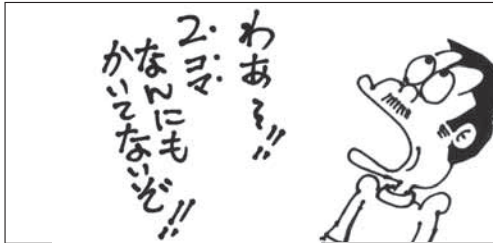 わあそ!!
2コマ
なんにも
かいてないぞ!!